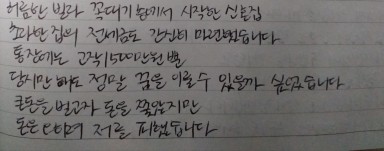 허름한 빌라 꼭대기 층에서 시작한 신혼집
초라한 집의 전세금도 간신히 마련했습니다
통장에는 고작 1500만원 뿐
당시만 해도 정말 꿈을 이룰 수 있을까 싶었습니다
큰돈을 벌고자 돈을 쫓았지만
돈은 되려 저를 피했습니다